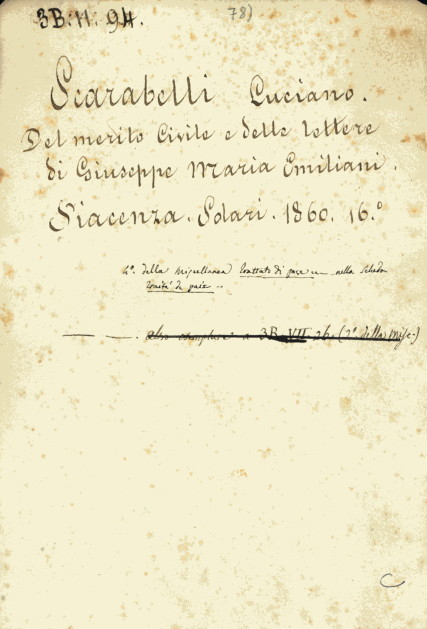 3B. H. 94.
78)
Scarabelli Luciano.
Del merito Civile e delle lettere
di Giuseppe Maria Emiliani.
Piacenza. Solari. 1860. 16.°
4°. della Miscellanea trattato di pace nella
Traité de paix ..
altro esemplare a 3B. VII. 26. (2° della Misc.)
C